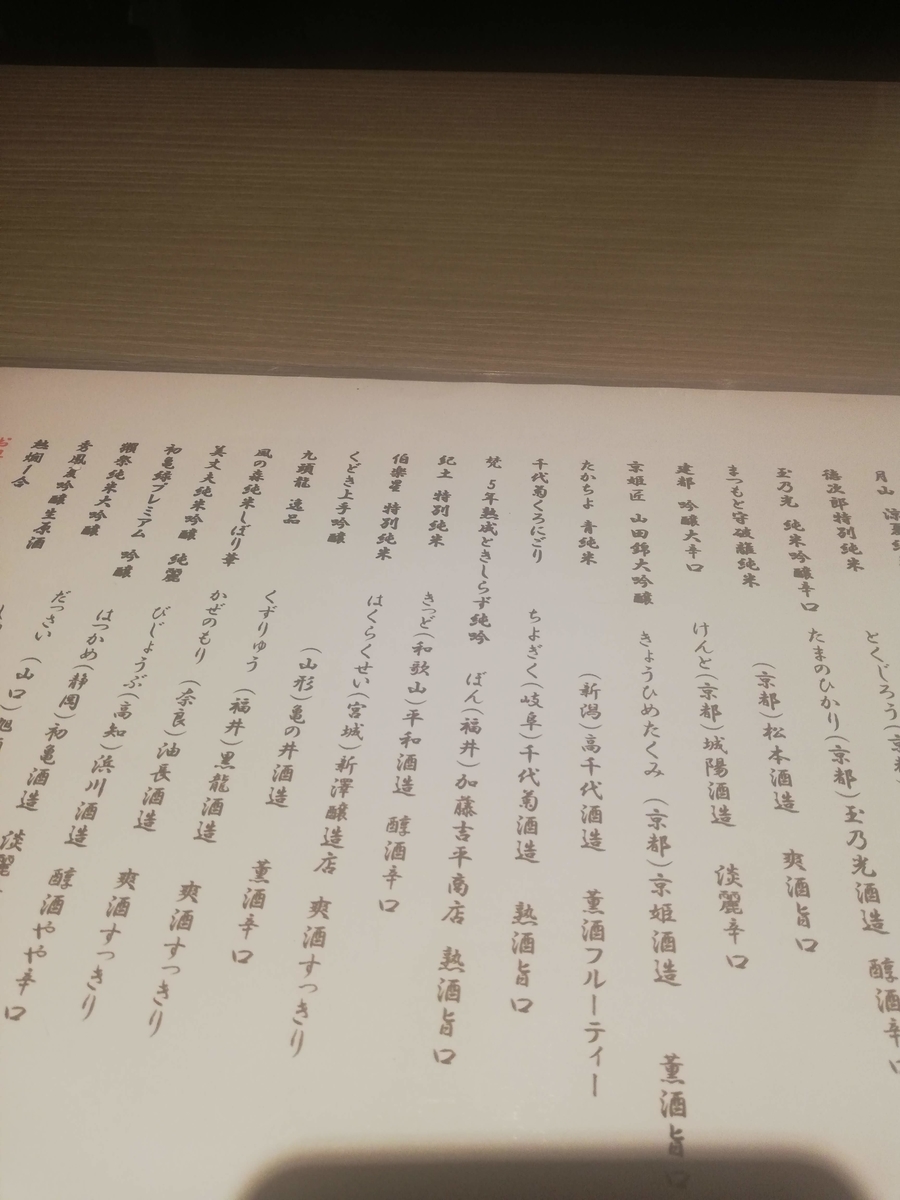 月山
徳次郎特別純米 とくじろう(京都)
玉乃光 純米吟醸辛口 たまのひかり(京都)玉乃光酒造 醇酒辛口
まつもと守破離純米 (京都)松本酒造 爽酒旨口
建都 吟醸大辛口 けんと(京都)城陽酒造 淡麗辛口
京姫匠 山田錦大吟醸 きょうひめたくみ (京都)京姫酒造 薫酒旨口
たかちよ 青純米 (新潟)高千代酒造 薫酒フルーティー
千代菊くろにごり ちよぎく(岐阜)千代菊酒造 熟酒旨口
梵 5年熟成ときしらず純吟 ぼん(福井)加藤吉平商店 熟酒旨口
紀土 特別純米 きっど(和歌山)平和酒造 醇酒辛口
伯楽星 特別純米 はくらくせい(宮城)新澤醸造店 爽酒すっきり
くどき上手吟醸 (山形)亀の井酒造 薫酒辛口
九頭龍 逸品 くずりゅう (福井)黒龍酒造 爽酒すっきり
風の森純米しぼり華 かぜのもり (奈良)油長酒造 爽酒すっきり
美丈夫純米吟醸 純麗 びじょうぶ(高知)浜川酒造 醇酒やや辛口
初亀緑プレミアム 吟醸 はつかめ(静岡)初亀酒造 淡麗
獺祭純米大吟醸 だっさい (山口)旭
秀鳳 吟醸生原酒
熱燗一合